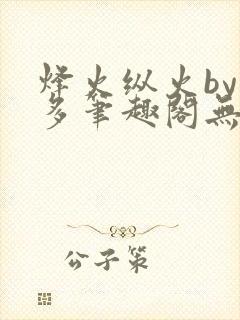 烽火纵火by
多笔趣阁無
公子策